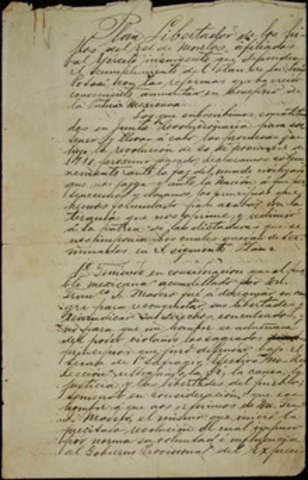 Plan Libertador de los hi
jos del Est. de Morelos, afiliados
al Ejército insurgente que defienden
el cumplimiento del Plan de San Luis
Potosí con las reformas que ha creido
conveniente aumentar en beneficio de
la Patria Mexicana.
Los que subscribimos, constituí
dos en Junta Revolucionaria para sos
tener y llevar á cabo las promesas que
hizo la revolución de 20 de Noviembre de
1910, próximo pasado, declaramos solem
nemente ante la faz del mundo
que nos juzga y ante la Nación á que
pertenecemos y amamos, los principios que
hemos formulado para acabar con la
tiranía que nos oprime y redimir
á la patria de las dictaduras que se
nos imponen las cuales quedan de ter
minadas en el siguiente Plan:
1º. Teniendo en consideración que el pue
blo mexicano acaudillado por Dn.
Franco. I. Madero fué á derramar su san
gre para reconquistar sus libertades y
reivindicar sus derechos conculcados, y
no para que un hombre se adueñara
del poder violando los sagrados
principios que juró defender bajo el
lema de "Sufragio Efectivo" "No Re
elección" ultrajando la fé, la causa, la
justicia y las libertades del pueblo;
teniendo en consideración: que ese
hombre á que nos referimos es Dn. Fran
I. Madero, el mismo que inició la
precitada revolución el cual impuso
por norma su voluntad é influencia
al Gobierno Provisional del Ex Presiden